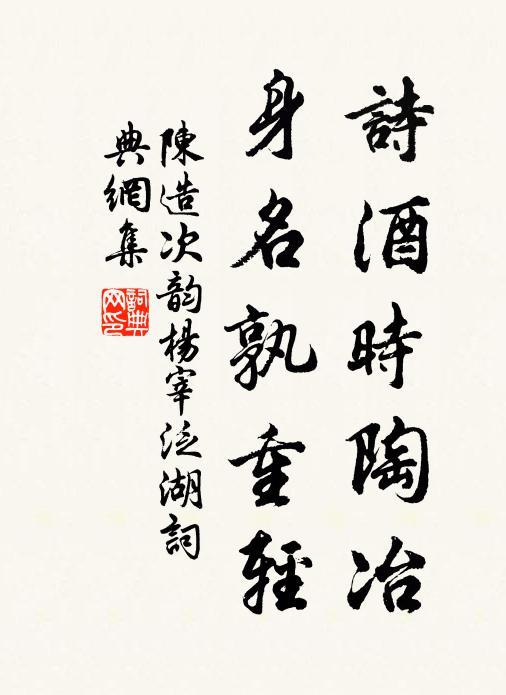 詩酒時陶冶
身名孰重輕
陳造次韵楊宰泛湖詞
典網集
詞典網印